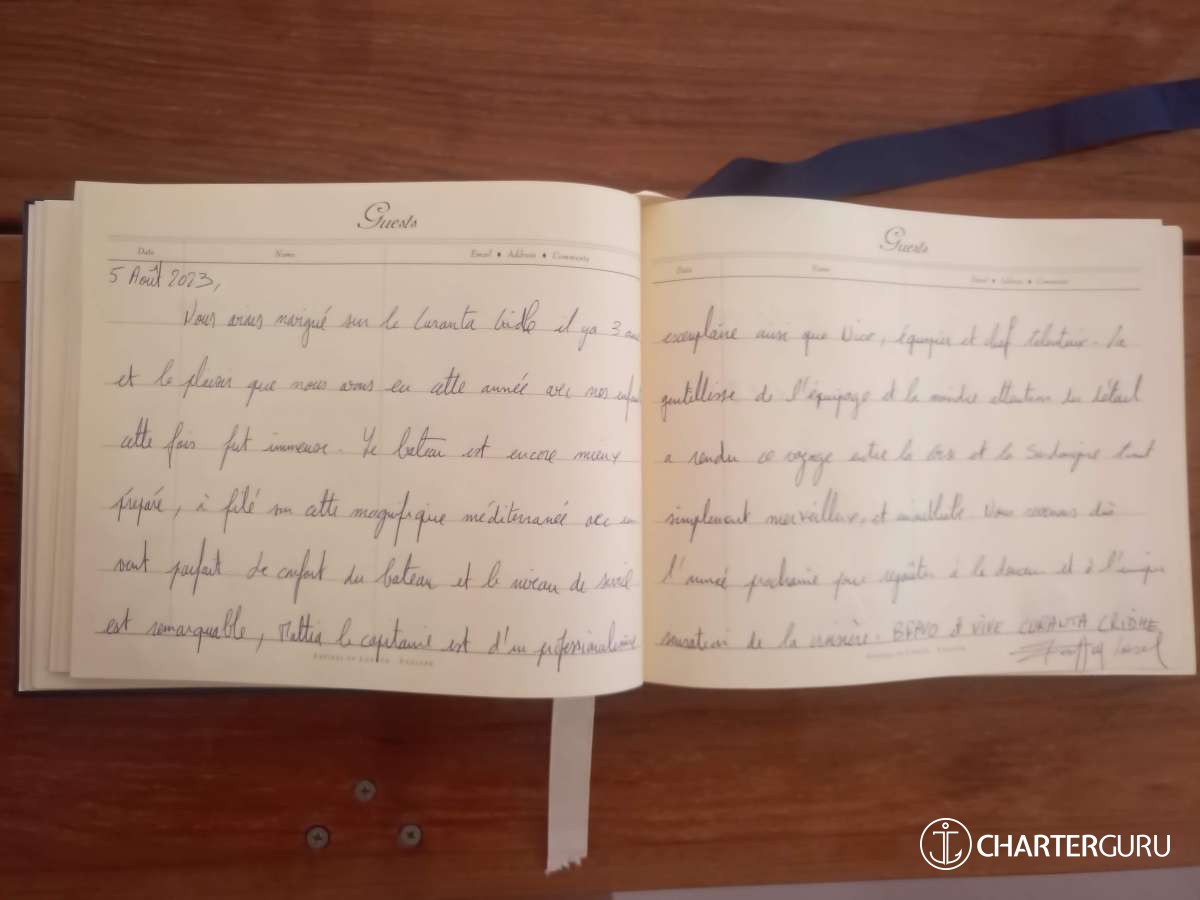 Guests
Date Name Email ♦ Address ♦ Comments
5 Août 2023,
Nous avions navigué sur le Curanta Cridhe il y a 3 ans
et le plaisir que nous avons eu cette année avec nos enfants
cette fois fut immense. Le bateau est encore mieux
préparé, à filé sur cette magnifique méditerranée avec un
vent parfait Le confort du bateau et le niveau de
est remarquable, Mattia le capitaine est d'un professionnalisme
Guests
Date Name Email ♦ Address ♦ Comments
exemplaire ainsi que Nico, équipier et chef talentueux. La
gentillesse de l'équipage et la moindre attention du détail
a rendu ce voyage entre la Corse et la Sardaigne tout
simplement merveilleux, et inoubliable Nous revenons dès
l'année prochaine pour regoûter à la douceur et à l'unique
sensation de la croisière. BRAVO & VIVE CURANTA CRIDHE
CHARTERGURU